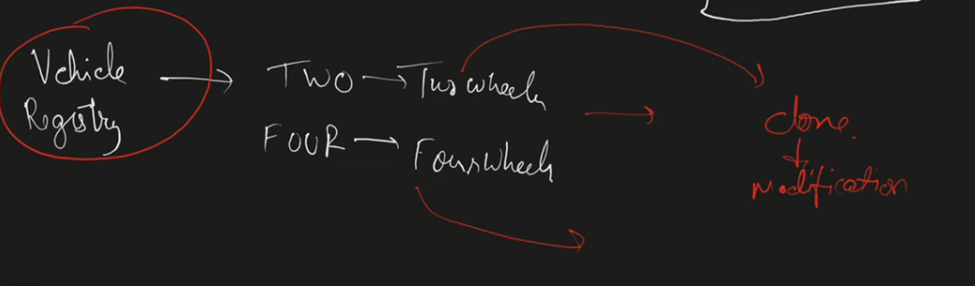 Vehicle
Registry
TWO → Twowheeler
FOUR → Fourwheeler
clone
+
modification